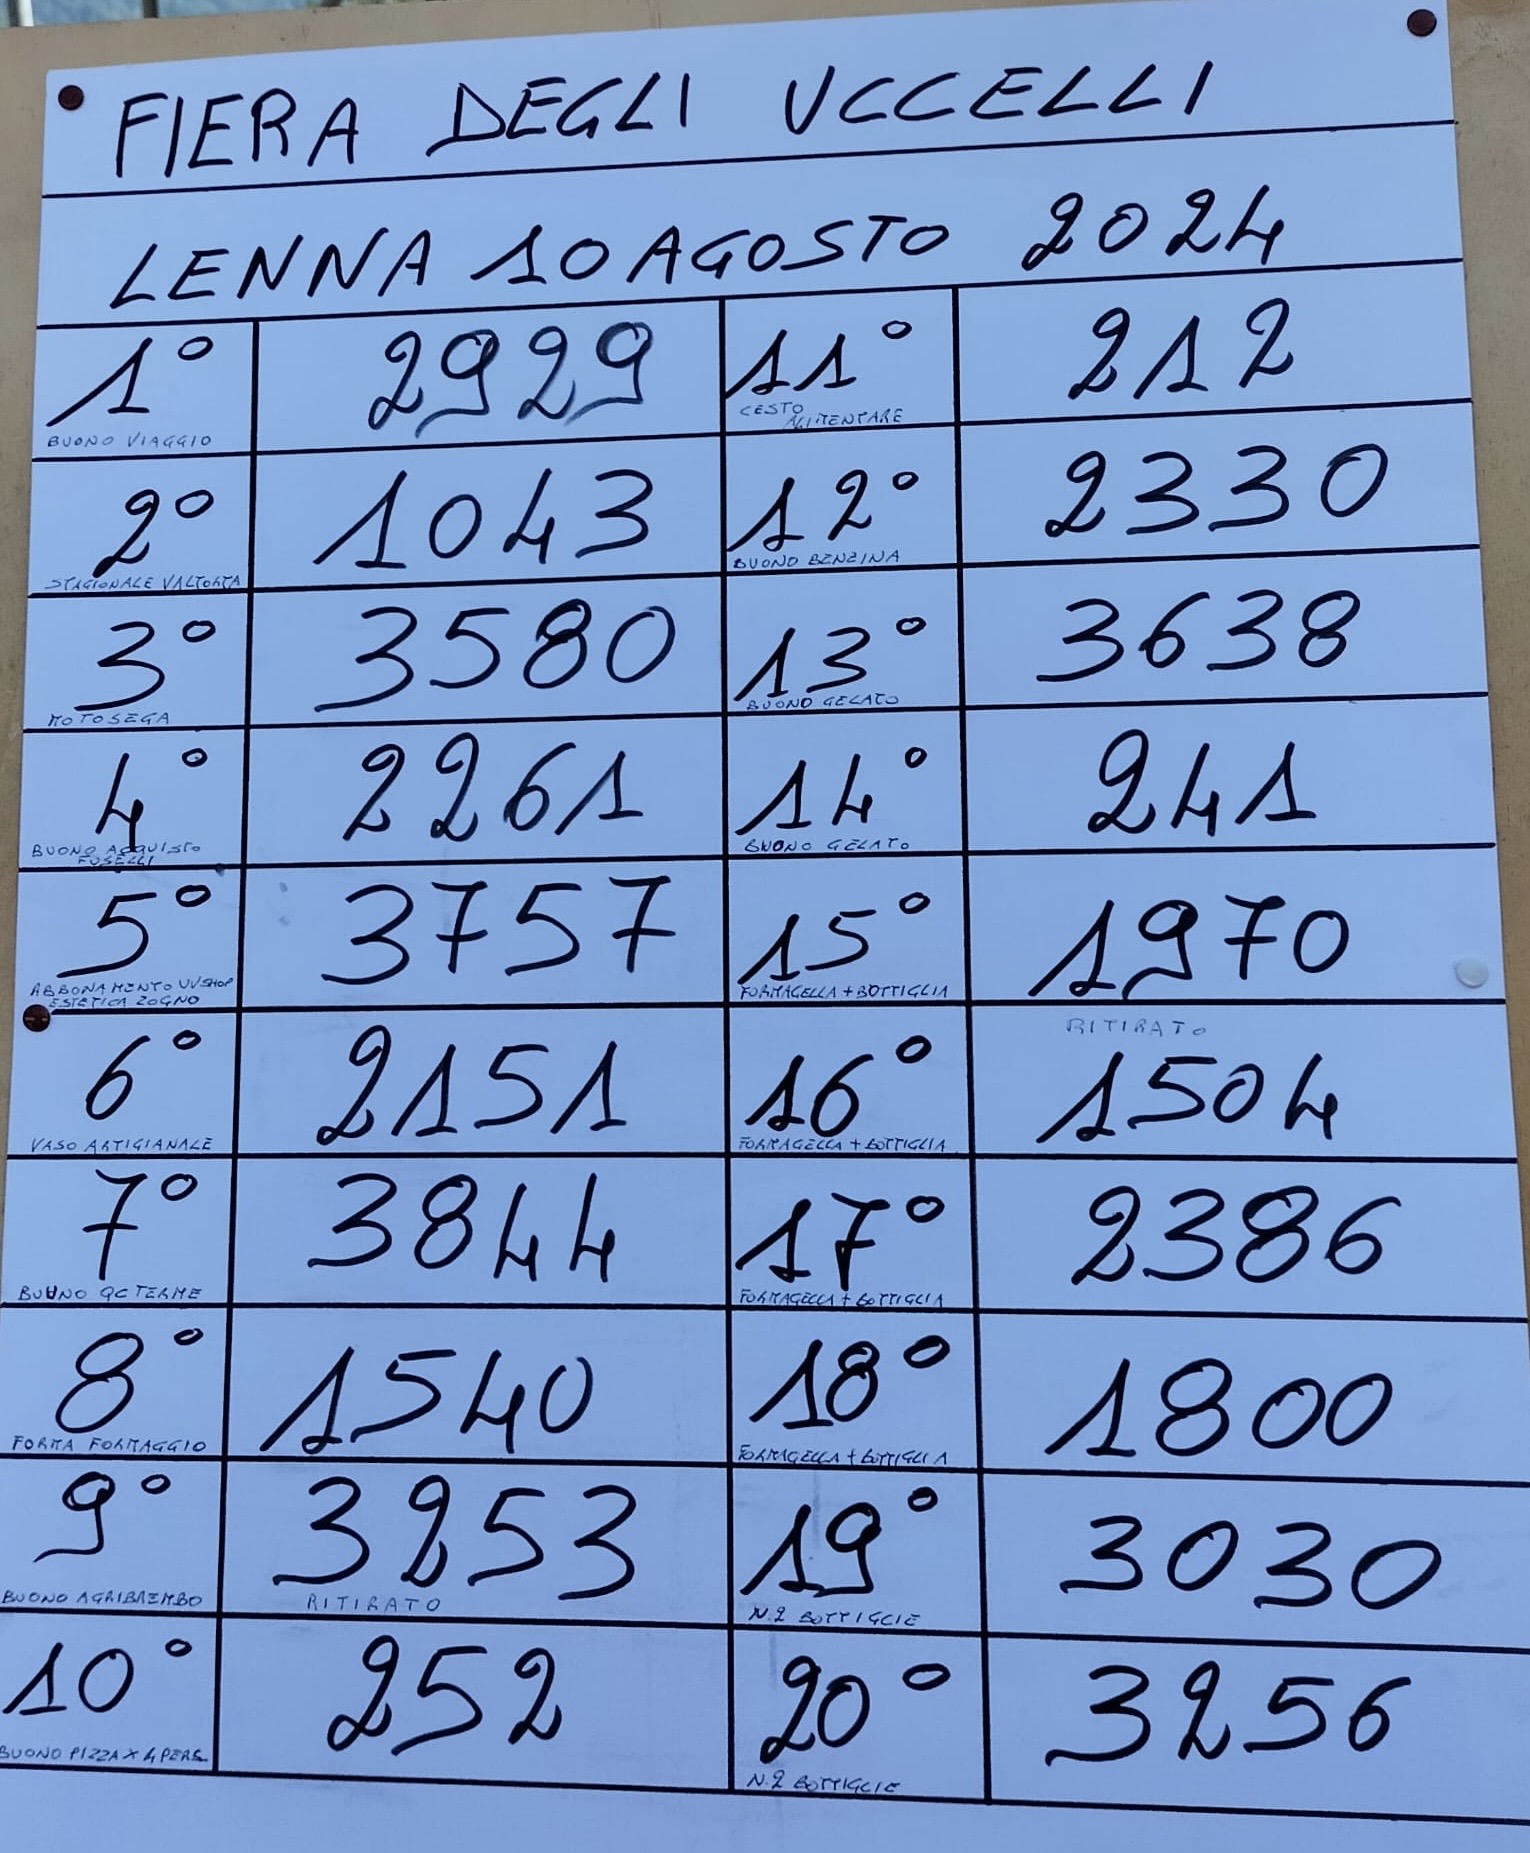 FIERA DEGLI UCCELLI
LENNA 10 AGOSTO 2024
1° 2929
BUONO VIAGGIO
2° 1043
STAGIONALE VALTORTA
3° 3580
MOTOSEGA
4° 2261
BUONO ACQUISTO
FUSELLI
5° 3757
ABBONAMENTO UVSHOP
ESTETICA ZOGNO
6° 2151
VASO ARTIGIANALE
7° 3844
BUONO QC TERME
8° 1540
FORMA FORMAGGIO
9° 3253
BUONO AGRIBREMBO RITIRATO
10° 252
BUONO PIZZA X 4 PERS.
11° 212
CESTO
ALIMENTARE
12° 2330
BUONO BENZINA
13° 3638
BUONO GELATO
14° 241
BUONO GELATO
15° 1970
FORMAGELLA + BOTTIGLIA
RITIRATO
16° 1504
FORMAGELLA + BOTTIGLIA
17° 2386
FORMAGELLA + BOTTIGLIA
18° 1800
FORMAGELLA + BOTTIGLIA
19° 3030
N.2 BOTTIGLIE
20° 3256
N.2 BOTTIGLIE